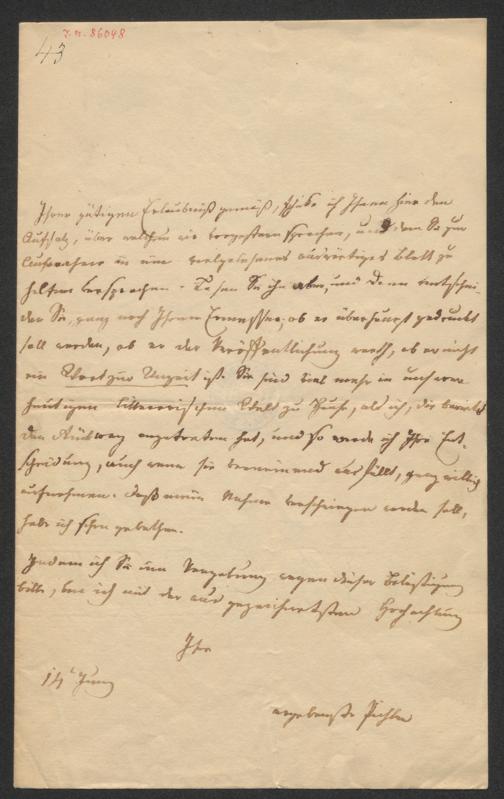 I. N. 86048
43
Ihrer gütigen Erlaubniß gemäß, schicke ich Ihnen hier den
Aufsatz, über welchen wir vorgestern sprachen, und den Sie zur
Aufnahme in ein vielgelesenes auswärtiges Blatt zu
helfen versprachen. Lesen Sie ihn aber, und dann entschei-
den Sie, ganz nach Ihrem Ermessen, ob er überhaupt gedruckt
soll werden, ob er der Veröffentlichung werth, ob er nicht
ein Wort zur Unzeit ist. Sie sind viel mehr in unserer
heutigen litterarischen Welt zu Hause, als ich, die bereits
den Rückweg angetreten hat, und so werde ich Ihre Ent-
scheidung, auch wenn sie verneinend ausfällt, ganz willig
aufnehmen. Daß mein Nahme verschwiegen werden soll,
habe ich schon gebethen.
Indem ich Sie um Vergebung wegen dieser Belästigung
bitte, bin ich mit der ausgezeichnetsten Hochachtung
Ihre
14 Juny
ergebenste Pichler